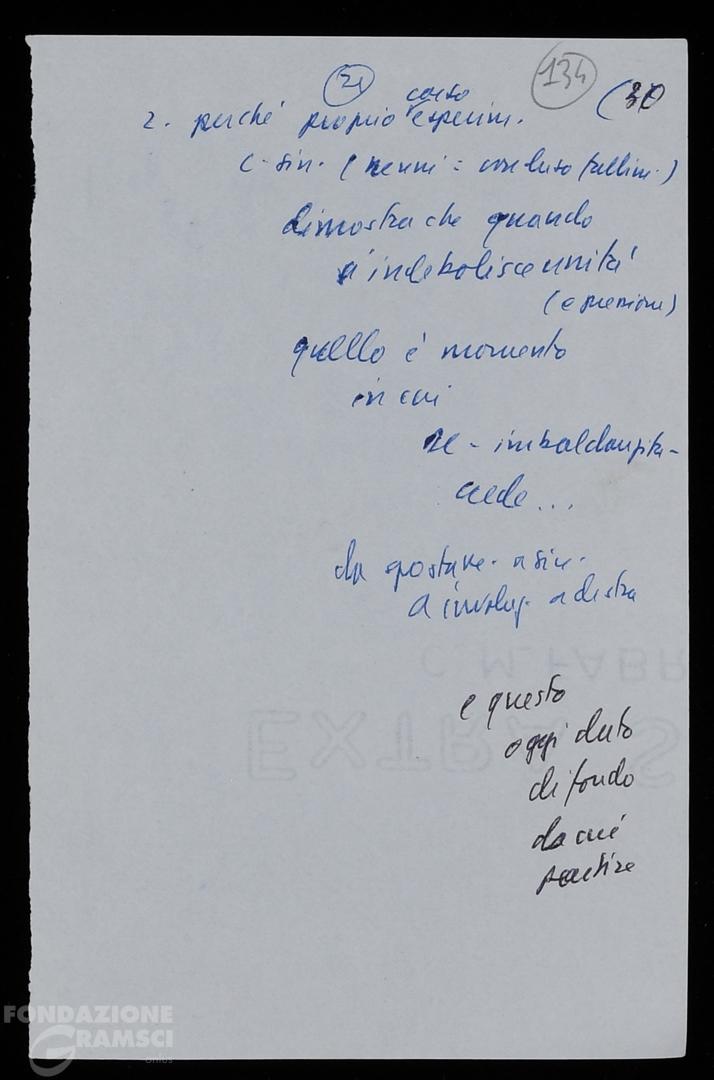 21 134 (30
corso
2. perché proprio esperim.
c-sin. (Nenni: concluso fallim.)
dimostra che quando
s'indebolisce unità
(e pressione)
quello è momento
in cui
DC - imbaldanzita -
cede...
da spostam. a sin.
a involuz. a destra
C. M. FABR
EXTRA S
e questo
oggi dato
di fondo
da cui
partire
FONDAZIONE
GRAMSCI
onlus